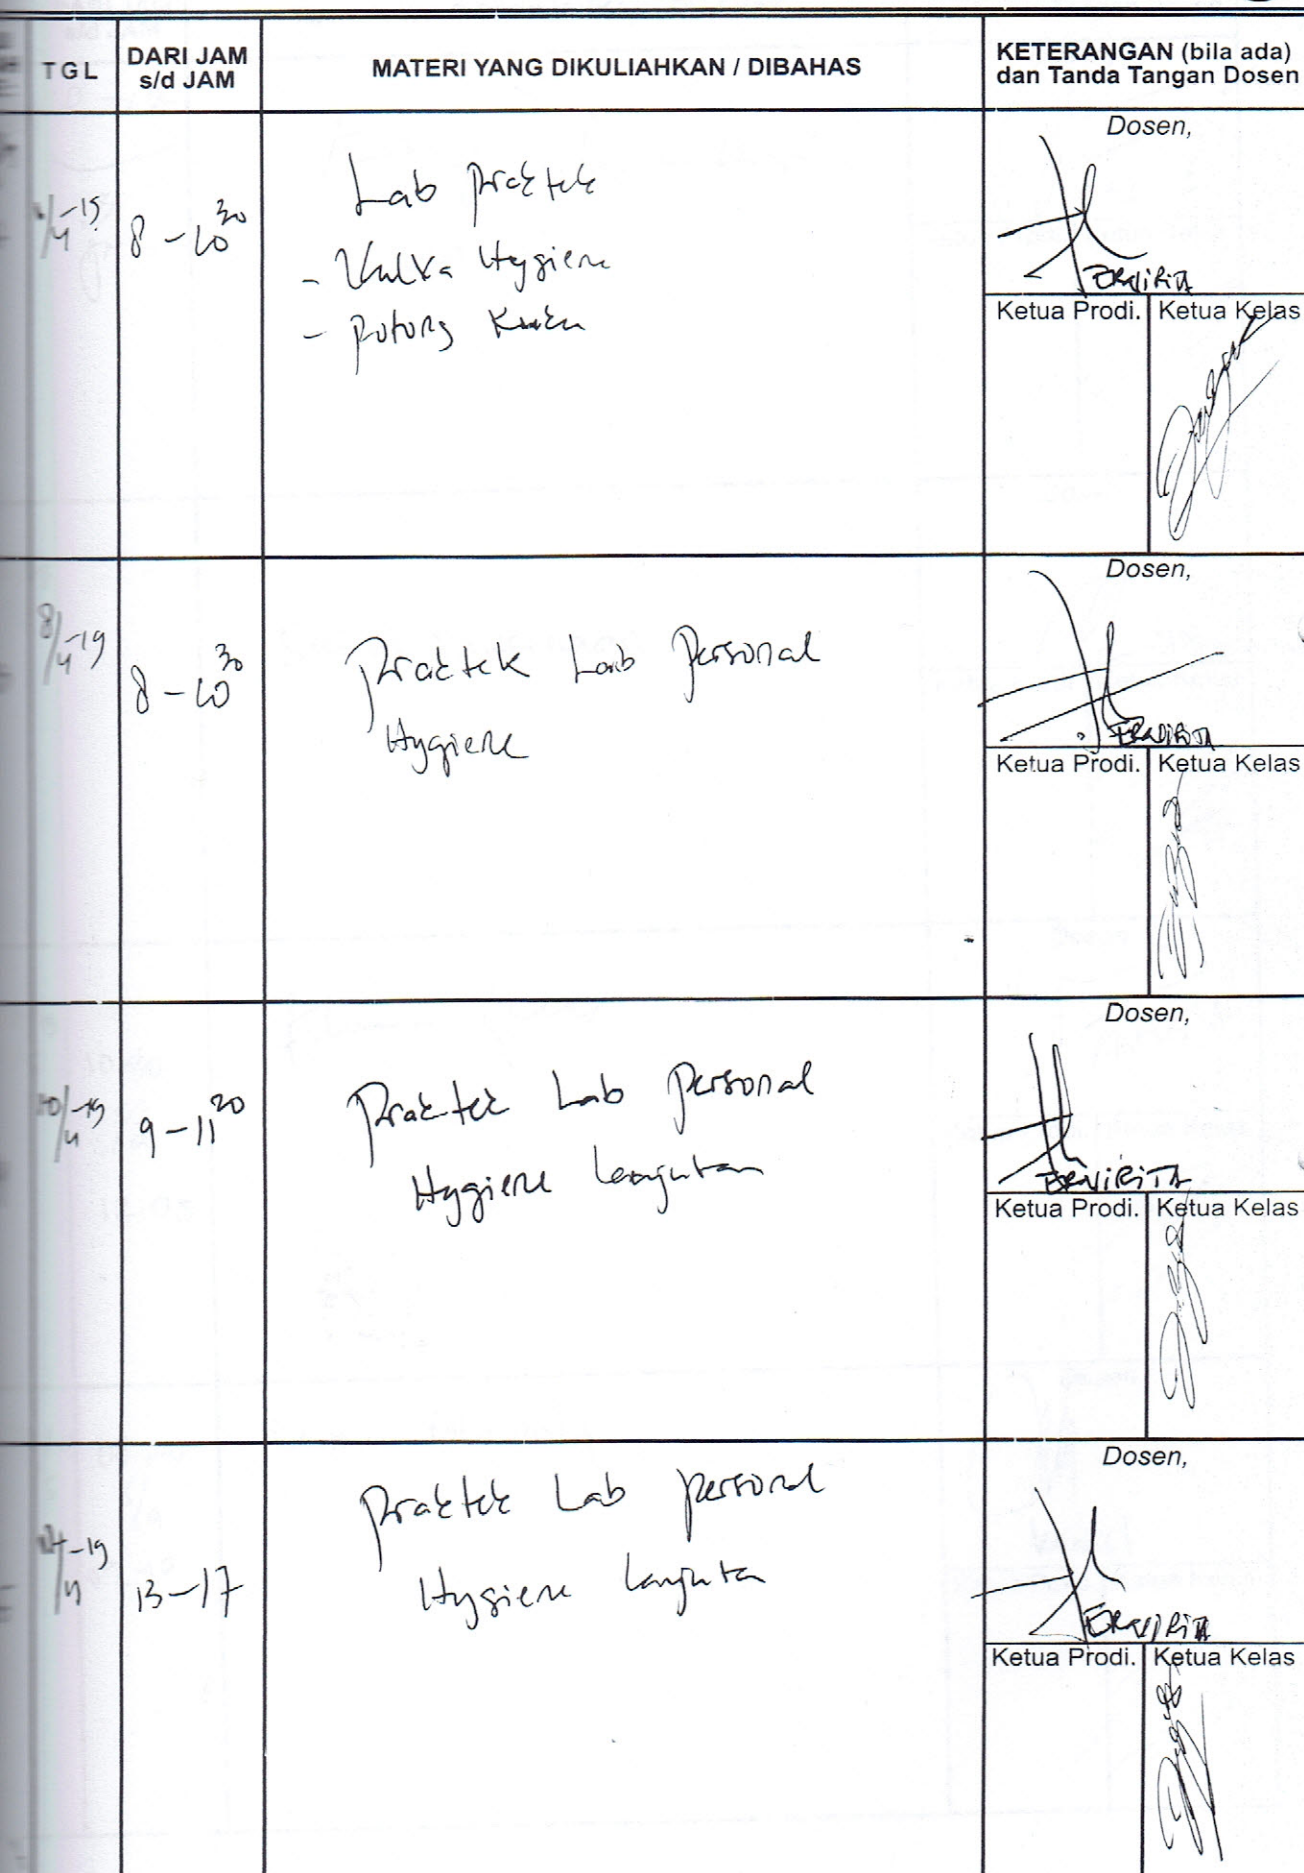 TGL
DARI JAM
s/d JAM
MATERI YANG DIKULIAHKAN / DIBAHAS
KETERANGAN (bila ada)
dan Tanda Tangan Dosen
/4-19
8 - 10 30
Lab praktek
- Vulva Hygiene
- Potong Kuku
Dosen,
ERNIRITA
Ketua Prodi.
Ketua Kelas
8/4-19
8 - 10 30
Praktek Lab Personal
Hygiene
Dosen,
ERNIRITA
Ketua Prodi.
Ketua Kelas
10/4-19
9 - 11 20
Praktek Lab Personal
Hygiene Lanjutan
Dosen,
ERNIRITA
Ketua Prodi.
Ketua Kelas
/4-19
13-17
Praktek Lab personal
Hygiene Lanjuta
Dosen,
ERNIRITA
Ketua Prodi.
Ketua Kelas